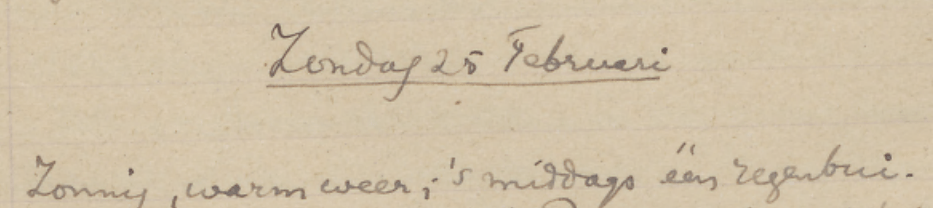 Zondag 25 Februari
Zonnig, warm weer; 's middags één regenbui.